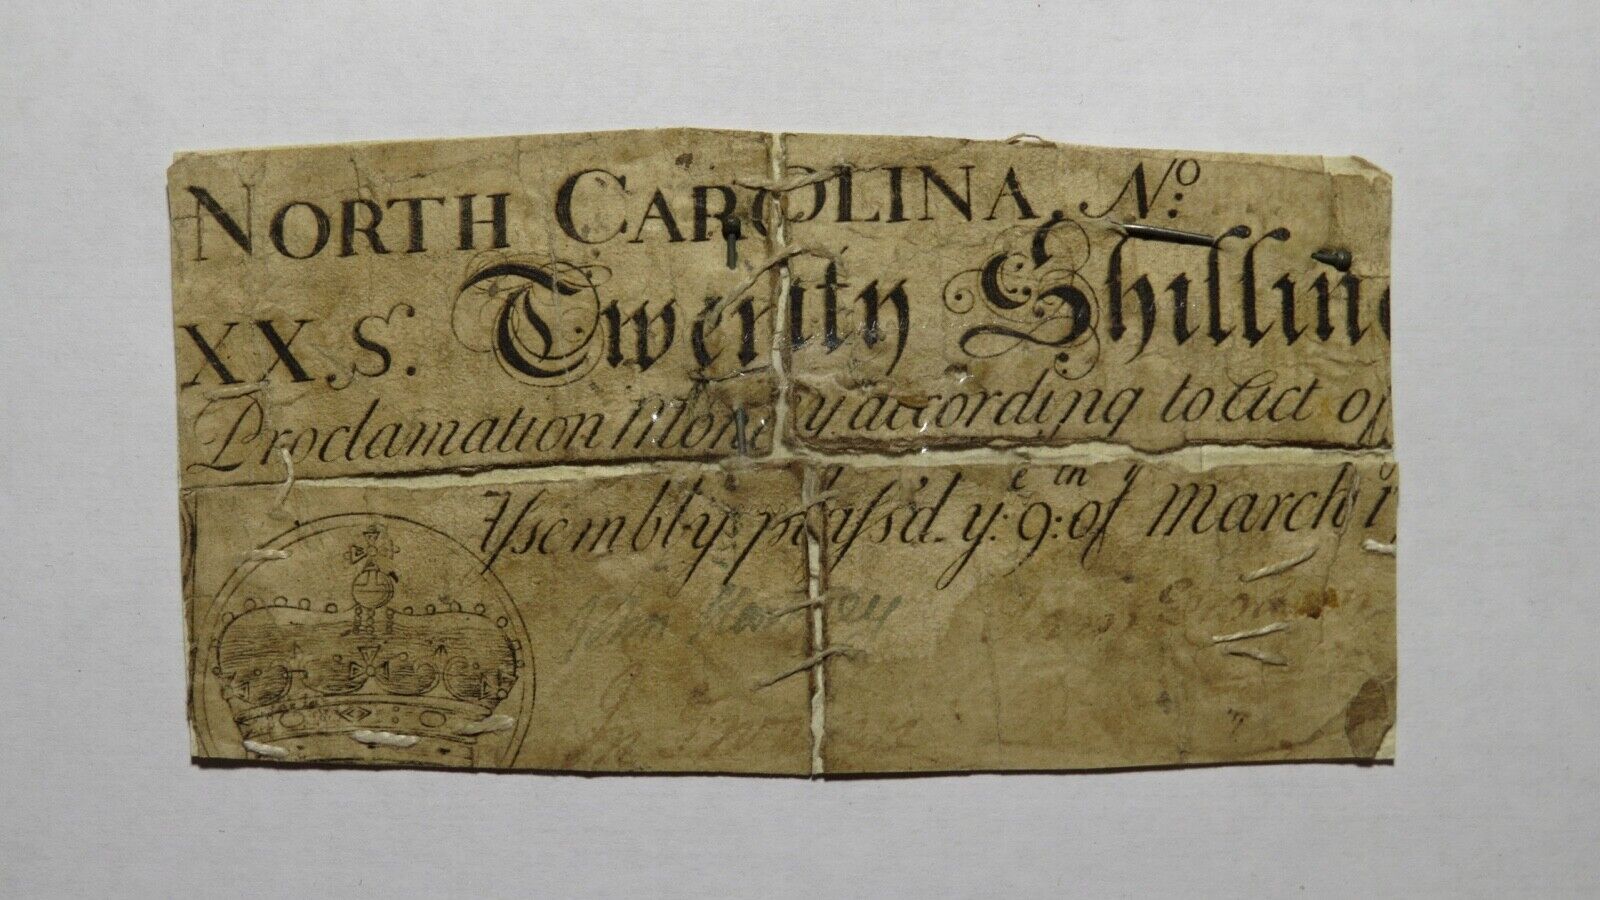 NORTH CAROLINA. No:
XX.S. Twenty Shilling
Proclamation Money according to Act of
Assembly pass'd ye: 9:th of March 17
John